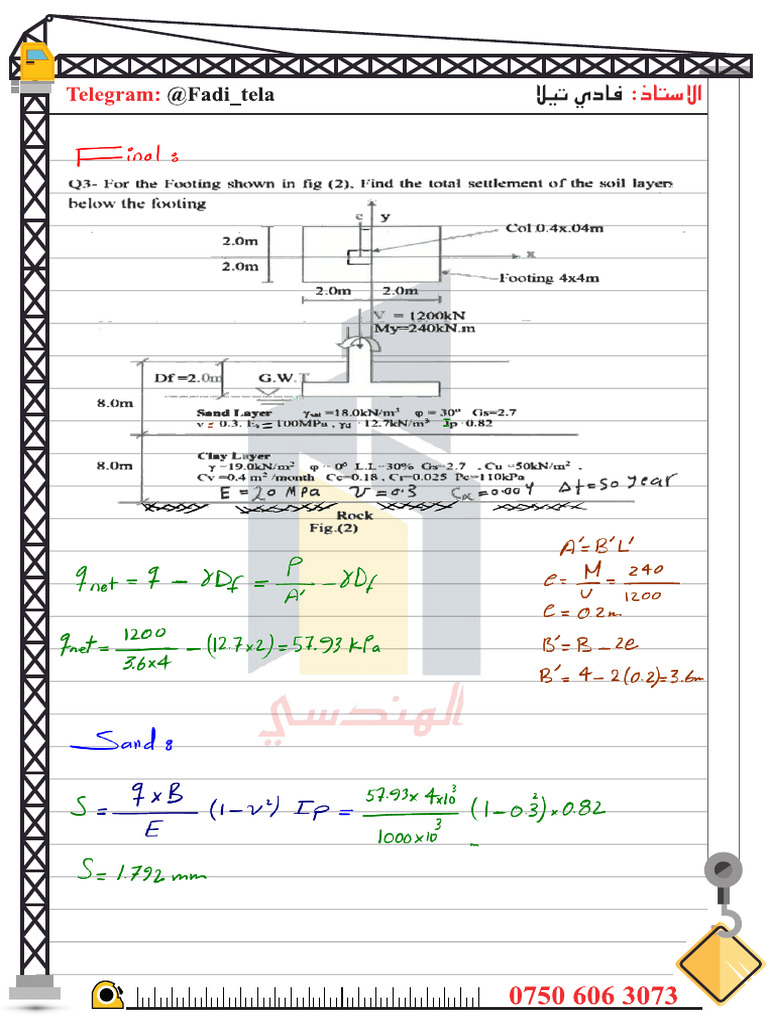 Telegram: @Fadi_tela
الاستاذ: فادي تيلا
Final:
Q3- For the Footing shown in fig (2), Find the total settlement of the soil layers
below the footing
e y
Col 0.4x.04m
2.0m
x
2.0m
Footing 4x4m
2.0m 2.0m
V = 1200kN
My=240kN.m
Df =2.0m G.W.T
8.0m
Sand Layer γsat =18.0kN/m³ φ = 30° Gs=2.7
v = 0.3. Es = 100MPa , γd 12.7kN/m³ Ip 0.82
Clay Layer
8.0m
γ =19.0kN/m² φ = 0° L.L=30% Gs=2.7 , Cu =50kN/m² .
Cv =0.4 m² /month Cc=0.18 , Cr=0.025 Pc=110kPa
E = 20 MPa ν = 0.3 Cα = 0.004 Δt = 50 year
Rock
Fig.(2)
A' = B'L'
q net = q - γDf = P/A' - γDf
e = M/V = 240/1200
e = 0.2m
q net = 1200/3.6x4 - (12.7x2) = 57.93 kPa
B' = B - 2e
B' = 4 - 2(0.2) = 3.6m
الهندسي
Sand:
S = qxB/E (1-ν²) Ip = 57.93x 4x10³/1000x10³ (1-0.3²)x0.82
S = 1.792 mm
0750 606 3073